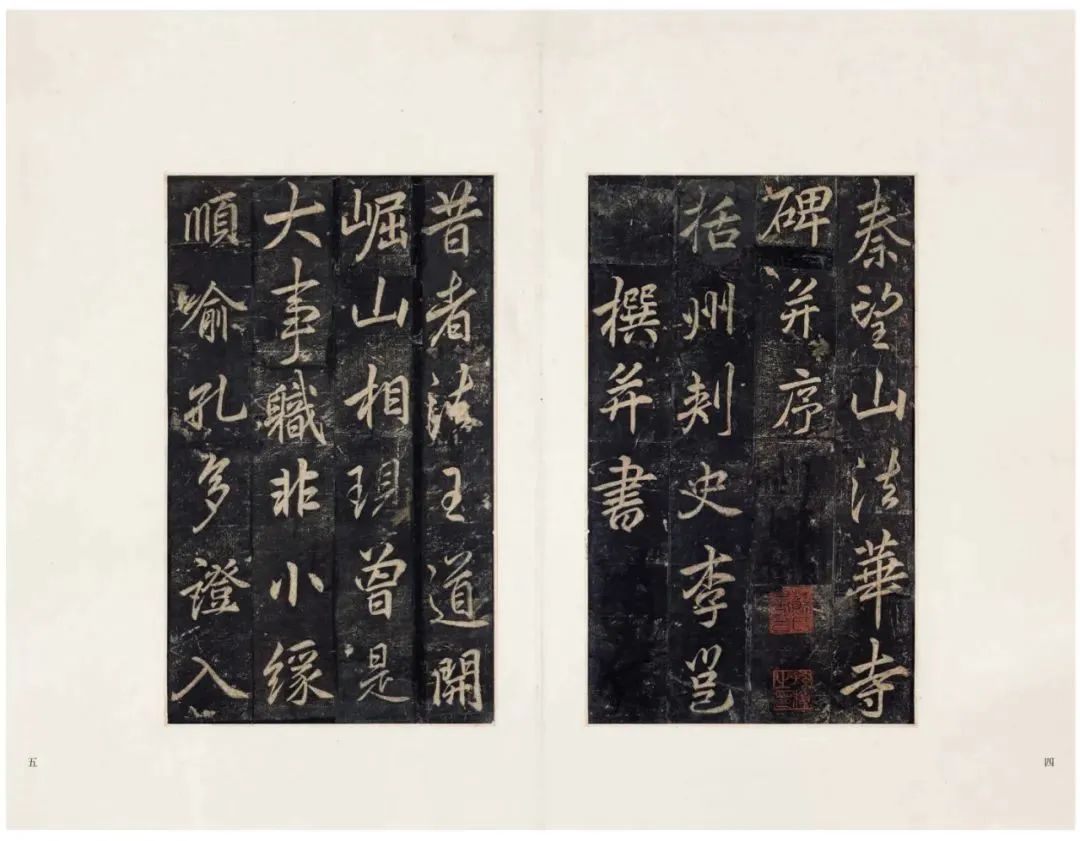 秦望山法華寺
碑并序
括州刺史李邕
撰并書
四
昔者法王道開
崛山相現曾是
大事職非小緣
順喻孔多證入
五